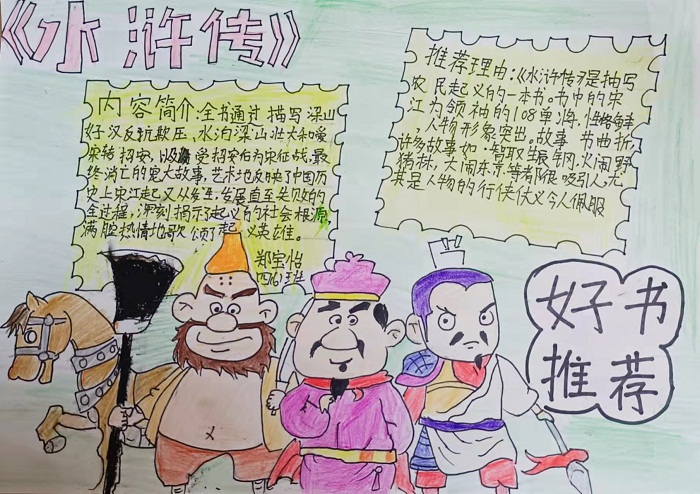 《水浒传》
内容简介:全书通过描写梁山
好汉反抗欺压,水泊梁山壮大和受
宋转招安,以及受招安后为宋征战,最
终消亡的宏大故事,艺术地反映了中国历
史上宋江起义从发生,发展直至失败的
全过程,深刻揭示了起义的社会根源
满腔热情地歌颂了起义英雄。
郑宝怡
四(6)班
推荐理由:《水浒传》是描写
农民起义的一本书。书中的宋
江为领袖的108单将,性格鲜
,人物形象突出。故事书曲折,
许多故事如,智取生辰纲,火闹野
猪林,大闹东京等都很吸引人,尤
其是人物的行侠仗义令人佩服
好书
推荐